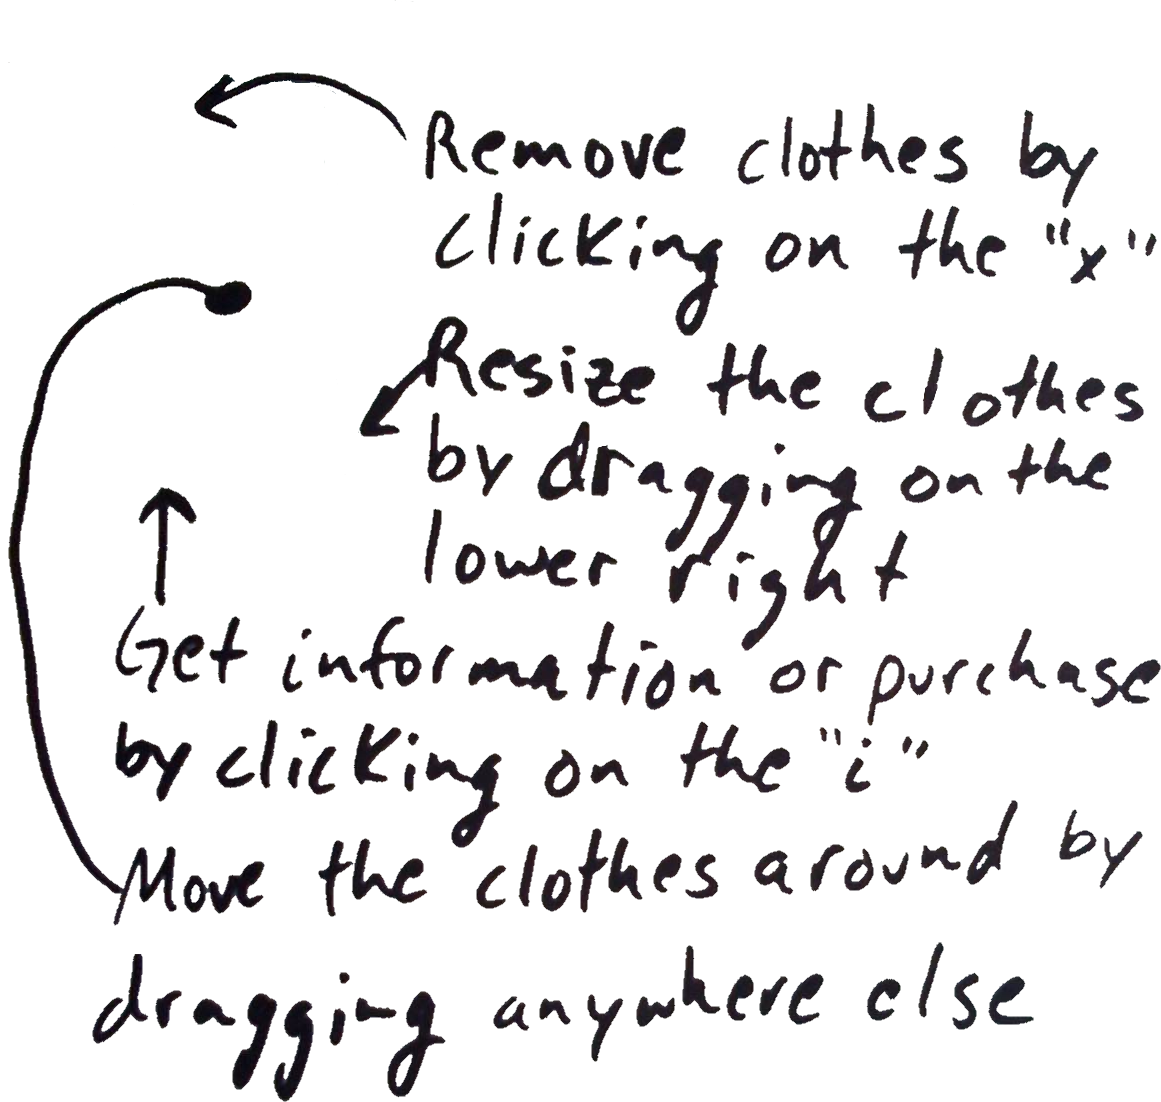 Remove clothes by
clicking on the "x"
Resize the clothes
by dragging on the
lower right
Get information or purchase
by clicking on the "i"
Move the clothes around by
dragging anywhere else